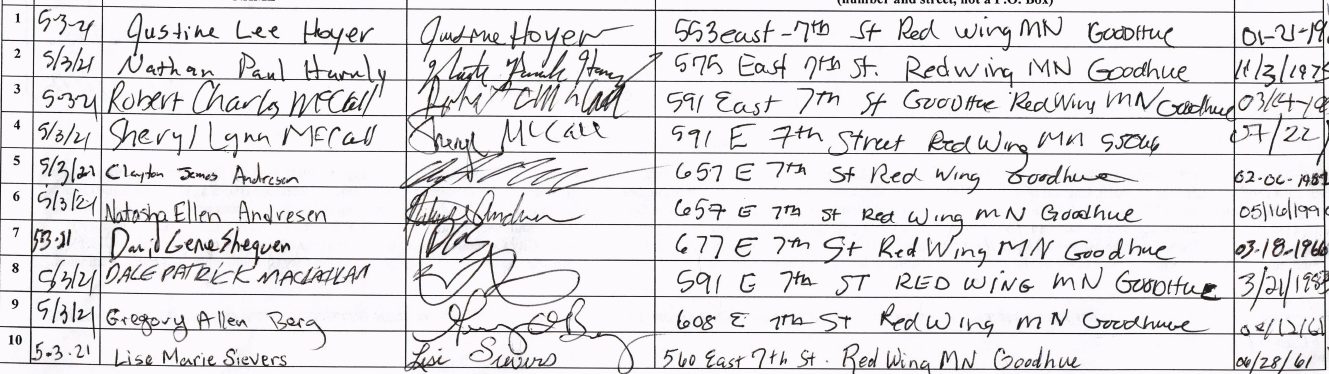 (number and street, not a P.O. Box)
1 5-3-21 Justine Lee Hoyer Justine Hoyer 553 east - 7th St Red wing MN Goodhue 01-21-19
2 5/3/21 Nathan Paul 575 East 7th St. Redwing MN Goodhue 11/3/197
3 5-3-21 Robert Charles McCall 591 East 7th St Goodhue Red Wing MN Goodhue
4 5/3/21 Sheryl Lynn McCall Sheryl McCall 591 E 7th Street Red Wing MN 55066 07/22/
5 5/3/21 Clayton James Andresen 657 E 7th St Red Wing Goodhue
6 5/3/21 Natasha Ellen Andresen 657 E 7th St Red Wing MN Goodhue 05/16/199
7 5-3-21 David Gene 677 E 7th St Red Wing MN Goodhue 03-18-1966
8 5/3/21 DALE PATRICK 591 E 7th ST RED WING MN GOODHUE 3/21/198
9 5/3/21 Gregory Allen Berg 608 E 7th St Red Wing MN Goodhuue
10 5.3.21 Lise Marie Sievers Lise Sievers 560 East 7th St. Red Wing MN Goodhue 06/28/61